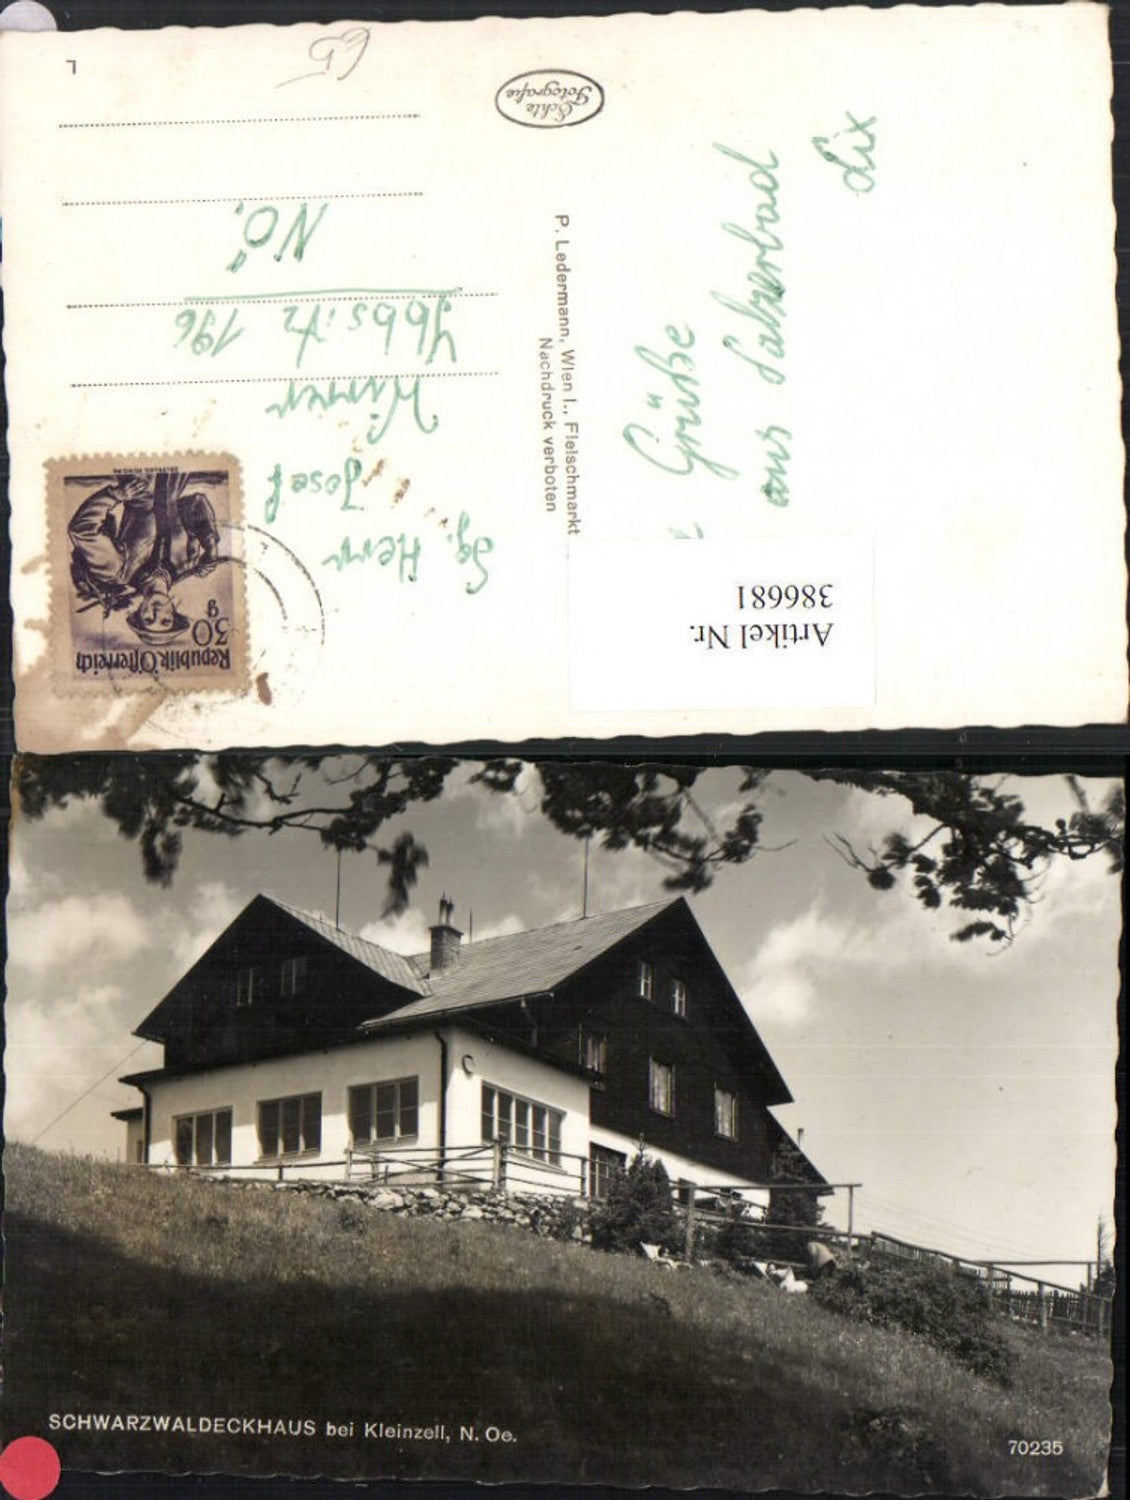 L
Echte
Fotografie
P. Ledermann, Wien I., Fleischmarkt
Nachdruck verboten
Grüße
aus Salzerbad
Lix
Sg. Herr
Josef
Ybbsitz 196
NÖ.
Republik Österreich
30
g
Artikel Nr.
386681
SCHWARZWALDECKHAUS bei Kleinzell, N. Oe.
70235